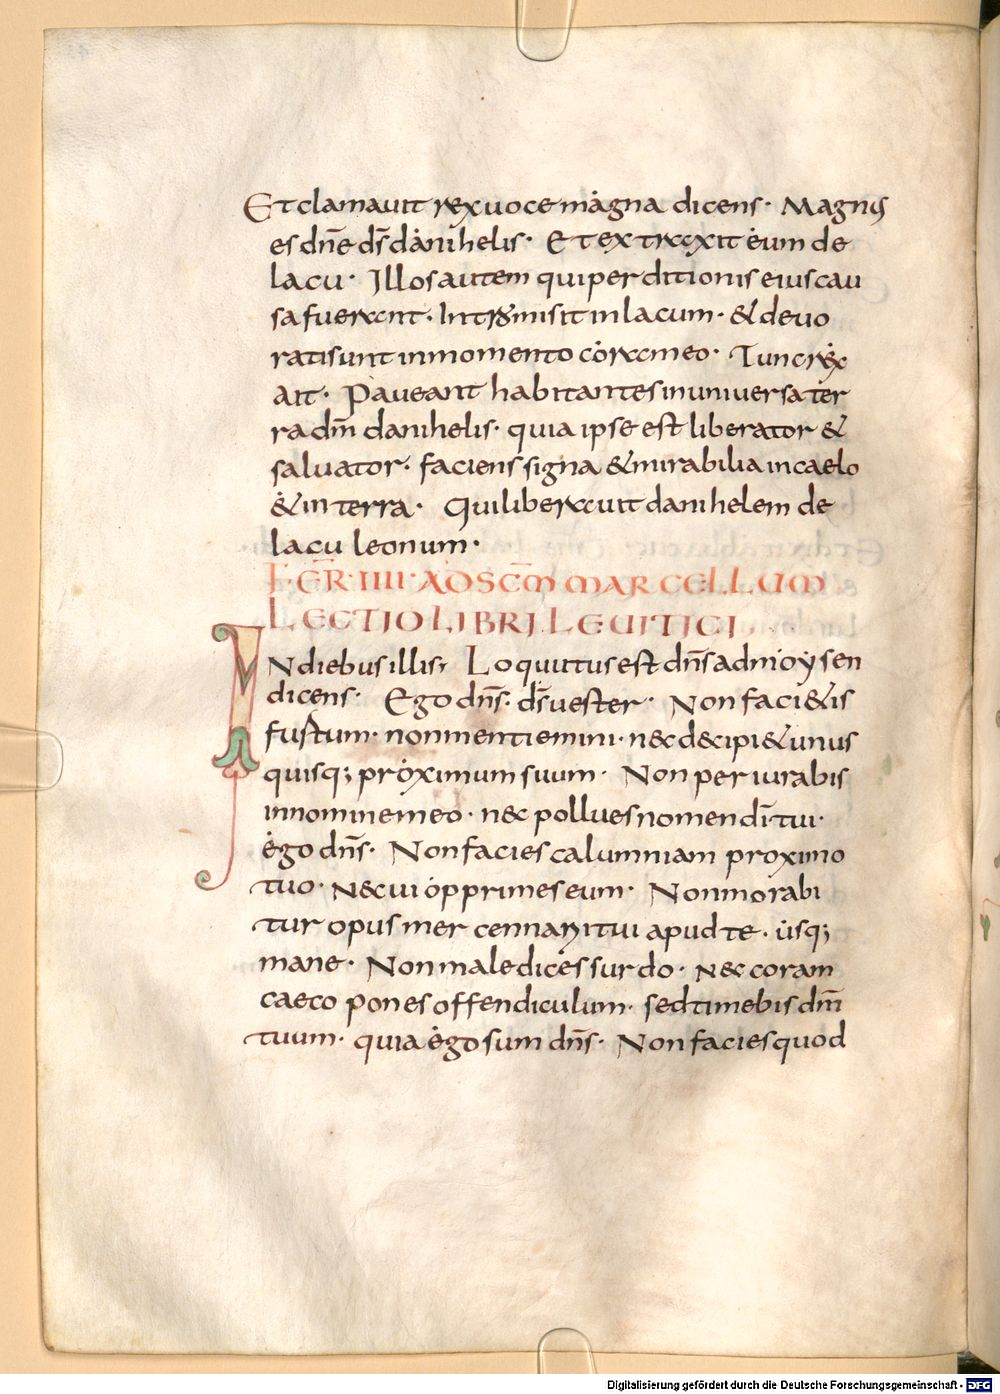 Et clamauit rex uoce magna dicens· Magnus
es dn̄e ds̄ danihelis· Et extraxit eum de
lacu· Illos autem qui perditionis eius cau
sa fuerant· Intromisit in lacum· & deuo
rati sunt in momento coram eo· Tunc rex
ait· Paueant habitantes in uniuersa ter
ra dm̄ danihelis· quia ipse est liberator &
saluator· faciens signa & mirabilia in caelo
& in terra· Qui liberauit danihelem de
lacu leonum·
FER̄·IIII·AD SCM̄ MARCELLUM
LECTIO LIBRI LEUITICI
IN diebus illis; Loquutus est dn̄s ad moysen
dicens· Ego dn̄s· ds̄ uester· Non faci&is
furtum· non mentiemini· nec decipi& unus
quisq; proximum suum· Non periurabis
in nomine meo· nec pollues nomen dī tui·
ego dn̄s· Non facies calumniam proximo
tuo· Nec ui opprimes eum· Non morabi
tur opus mercennarii tui apud te· usq;
mane· Non maledices surdo· nec coram
caeco pones offendiculum· sed timebis dm̄
tuum· quia ego sum dn̄s· Non facies quod
Digitalisierung gefördert durch die Deutsche Forschungsgemeinschaft - DFG